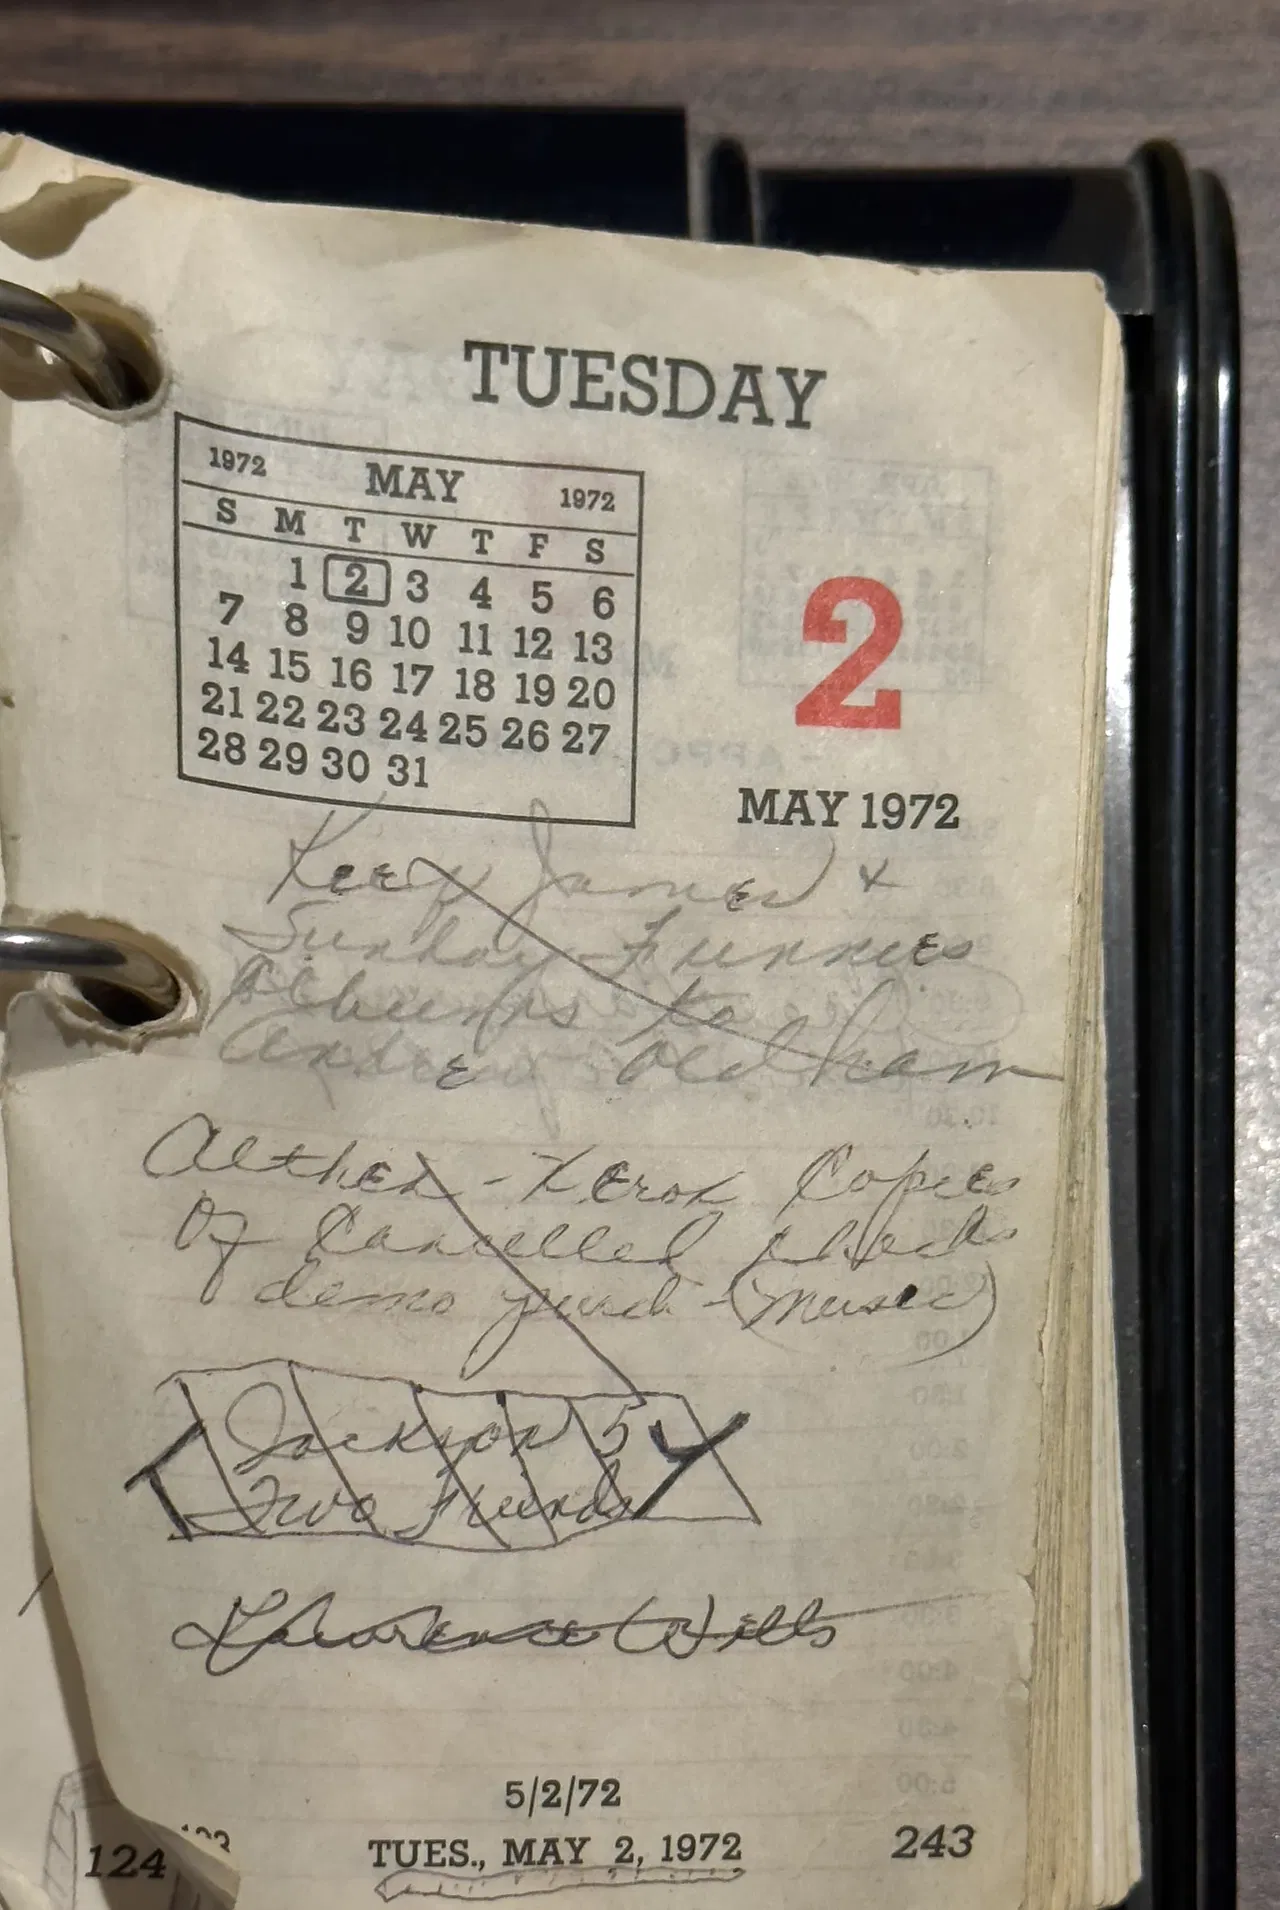 TUESDAY
1972 MAY 1972
S M T W T F S
1 2 3 4 5 6
7 8 9 10 11 12 13
14 15 16 17 18 19 20
21 22 23 24 25 26 27
28 29 30 31
2
MAY 1972
Keep James &
Sunday Funnies
Albums to
Andrew Oldham
Althea - Xerox Copies
Of Cancelled checks
demo purch - (Music)
Jackson 5
Two Friends
Lawrence Wills
5/2/72
124 TUES., MAY 2, 1972 243